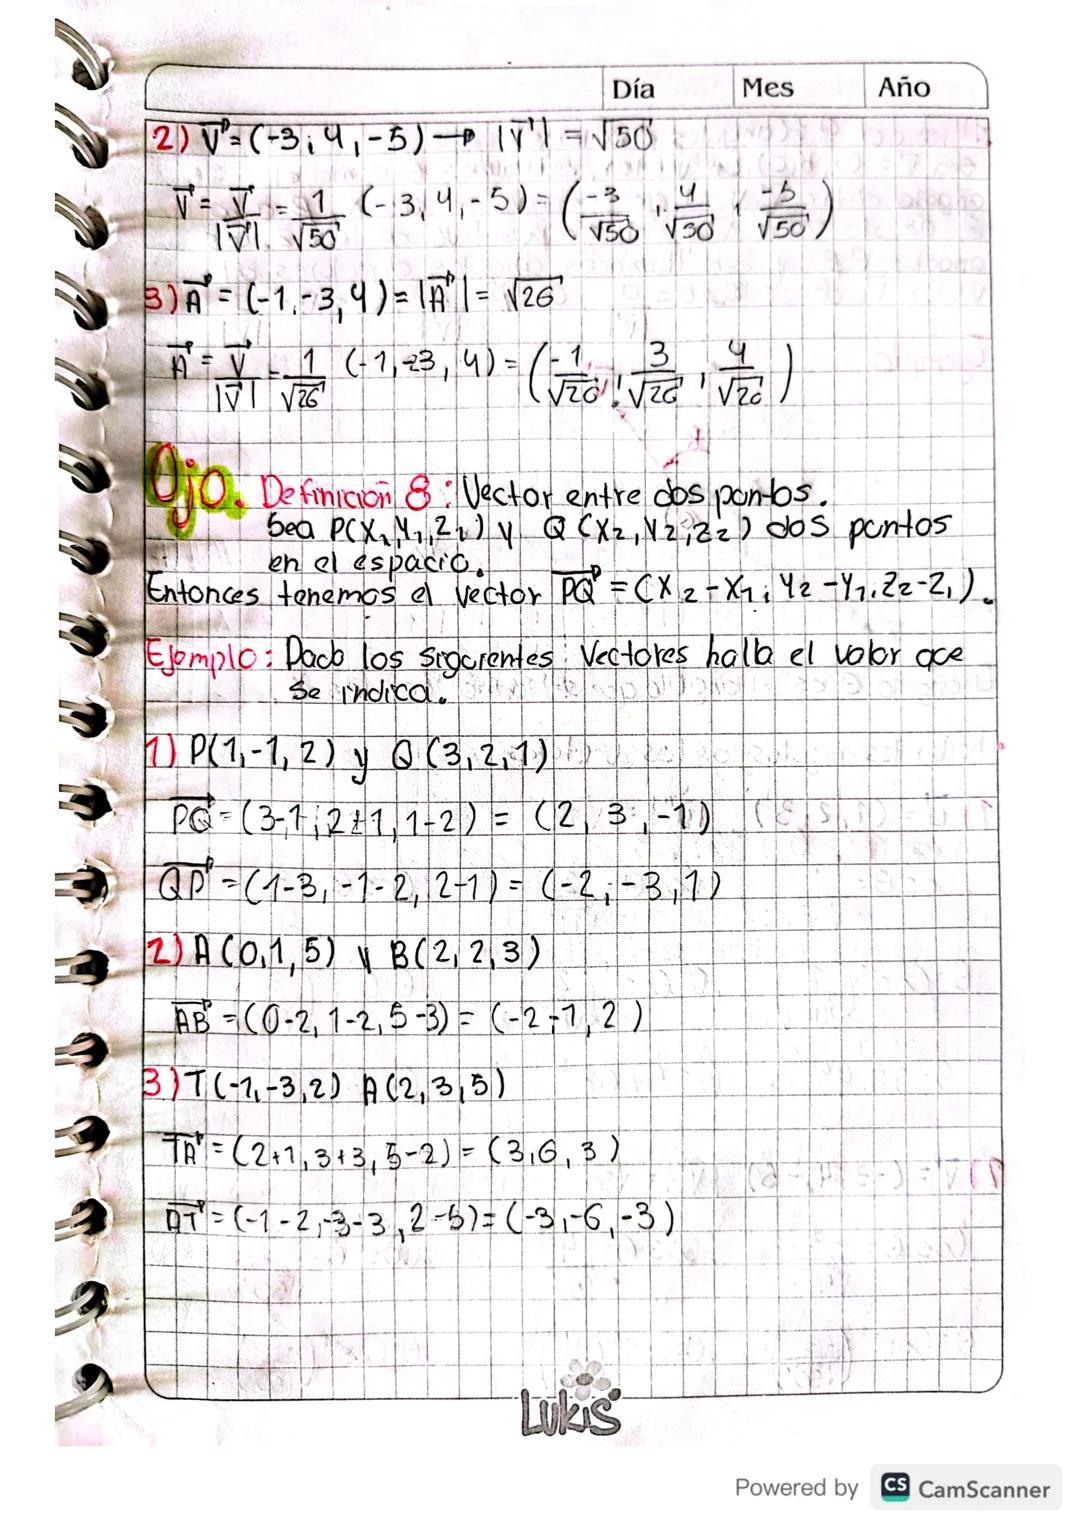 Día Mes Año
2) V⃗=(-3,4,-5) → |V⃗| = √50
V⃗ = V⃗/|V⃗| = 1/√50 (-3,4,-5) = (-3/√50, 4/√50, -5/√50)
3) A⃗ = (-1,-3,4) = |A⃗| = √26
A⃗ = V⃗/|V⃗| = 1/√26 (-1,-3,4) = (-1/√26, 3/√26, 4/√26)
Ojo. Definición 8: Vector entre dos puntos.
Sea P(X1,Y1,Z1) y Q(X2,Y2,Z2) dos puntos
en el espacio.
Entonces tenemos el vector PQ⃗ = (X2-X1, Y2-Y1, Z2-Z1).
Ejemplo: Dado los siguientes Vectores halla el valor que
se indica.
1) P(1,-1,2) y Q(3,2,1)
PQ⃗ = (3-1, 2+1, 1-2) = (2, 3, -1)
QP⃗ = (1-3, -1-2, 2-1) = (-2, -3, 1)
2) A(0,1,5) y B(2,2,3)
AB⃗ = (0-2, 1-2, 5-3) = (-2,-1,2)
3) T(-1,-3,2) A(2,3,5)
TA⃗ = (2+1, 3+3, 5-2) = (3,6,3)
AT⃗ = (-1-2, -3-3, 2-5) = (-3,-6,-3)
LUKIS
Powered by CS CamScanner